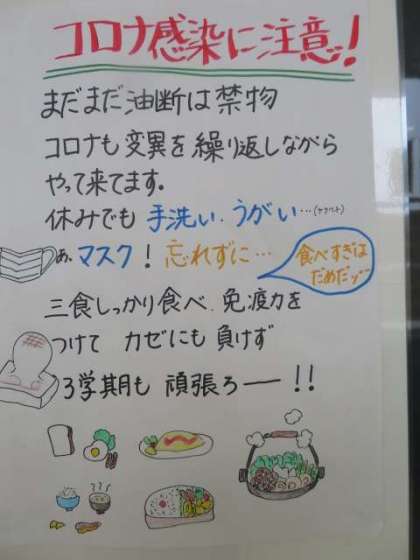 コロナ感染に注意ッ!
まだまだ油断は禁物
コロナも変異を繰り返しながら
やって来てます。
休みでも 手洗い、うがい…
あ、マスク! 忘れずに…
食べすぎは
だめだッ
三食しっかり食べ、免疫力を
つけて カゼにも 負けず
3学期も 頑張ろー!!